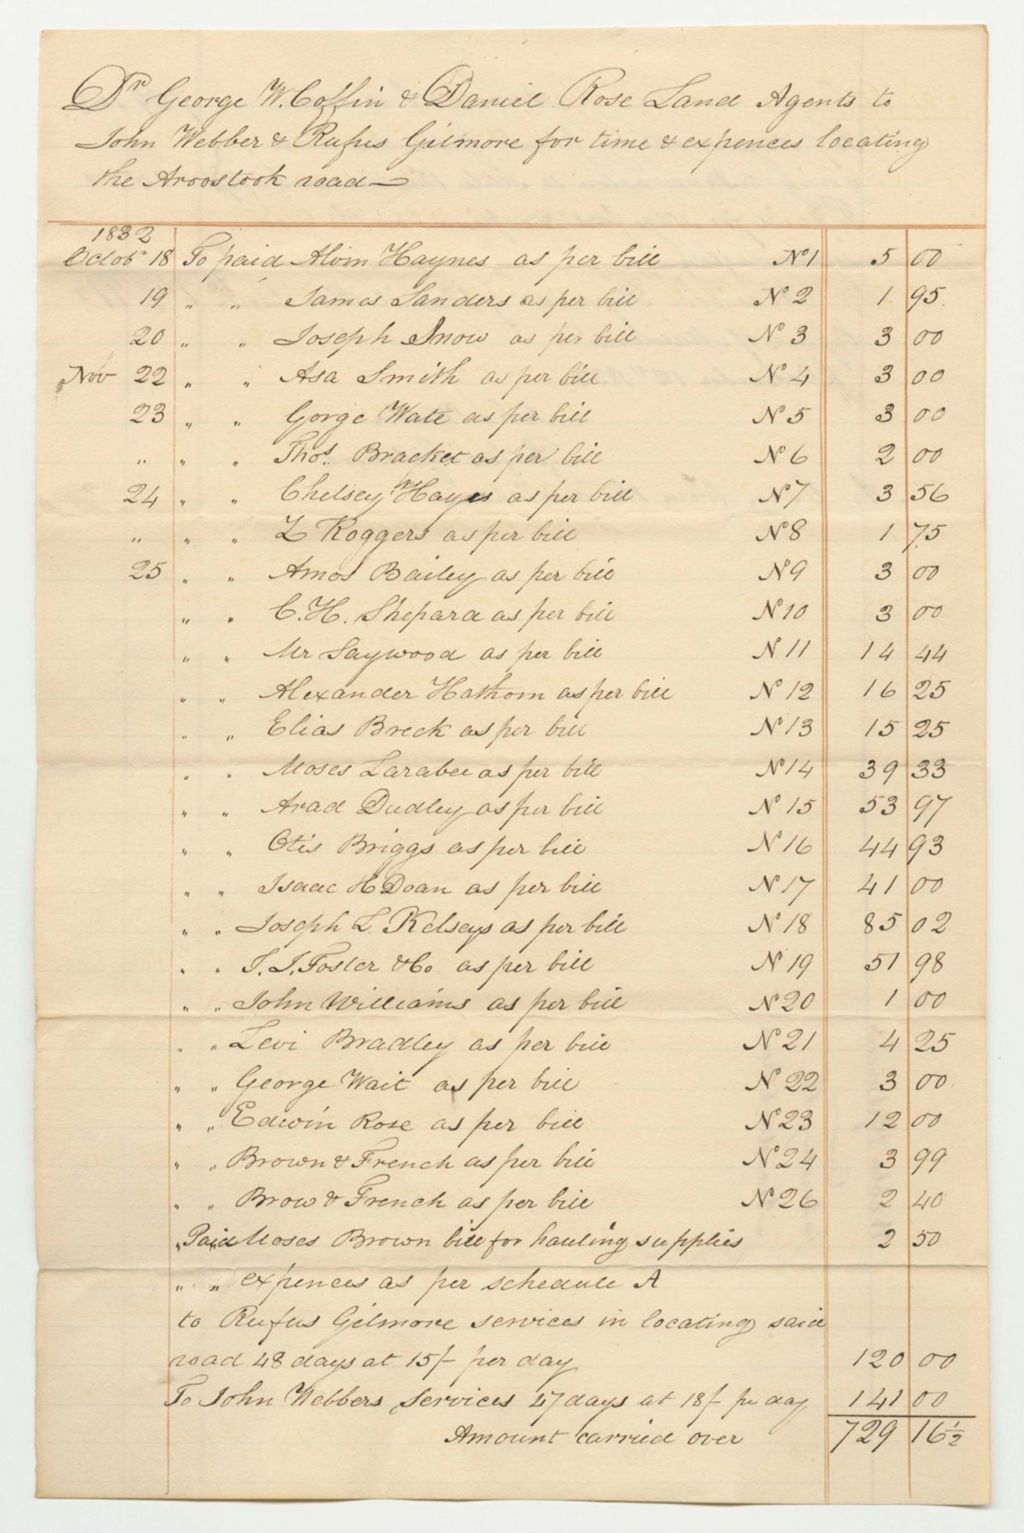 Dr George W. Coffin & Daniel Rose Land Agents to
John Webber & Rufus Gilmore for time & expences locating
the Aroostook road—
1832
Octob 18 To paid Alvin Haynes as per bill No 1 5 00
19 " " James Sanders as per bill No 2 1 95
20 " " Joseph Snow as per bill No 3 3 00
Nov 22 " " Asa Smith as per bill No 4 3 00
23 " " Gorge Wate as per bill No 5 3 00
" " " Thos. Bracket as per bill No 6 2 00
24 " " Chelsey Hayes as per bill No 7 3 56
" " " L Roggers as per bill No 8 1 75
25 " " Amos Bailey as per bill No 9 3 00
" " C. H. Shepard as per bill No 10 3 00
" " Mr Saywood as per bill N 11 14 44
" " Alexander Hathorn as per bill No 12 16 25
" " Elias Breck as per bill No 13 15 25
" " Moses Larabee as per bill No 14 39 33
" " Arad Dudley as per bill No 15 53 97
" " Otis Briggs as per bill No 16 44 93
" " Isaac H Doan as per bill No 17 41 00
" " Joseph L. Kelseys as per bill No 18 85 02
" " T. J. Foster & Co as per bill No 19 51 98
" " John Williams as per bill No 20 1 00
" " Levi Bradley as per bill No 21 4 25
" " George Wait as per bill No 22 3 00
" " Edwin Rose as per bill No 23 12 00
" " Brown & French as per bill No 24 3 99
" " Brow & French as per bill No 26 2 40
" Paid Moses Brown bill for hauling supplies 2 50
" " expences as per schedule A
to Rufus Gilmore services in locating said
road 48 days at 15/- per day 120 00
To John Webbers services 47 days at 18/- pr day 141 00
Amount carried over 729 16½